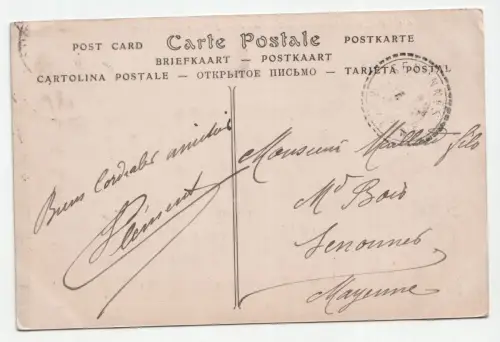 POST CARD Carte Postale POSTKARTE
BRIEFKAART — POSTKAART
CARTOLINA POSTALE — ОТКРЫТОЕ ПИСЬМО — TARJETA POSTAL
Bien Cordiales amitiés
Clément
Monsieur fils
Md Bois
Senonnes
Mayenne